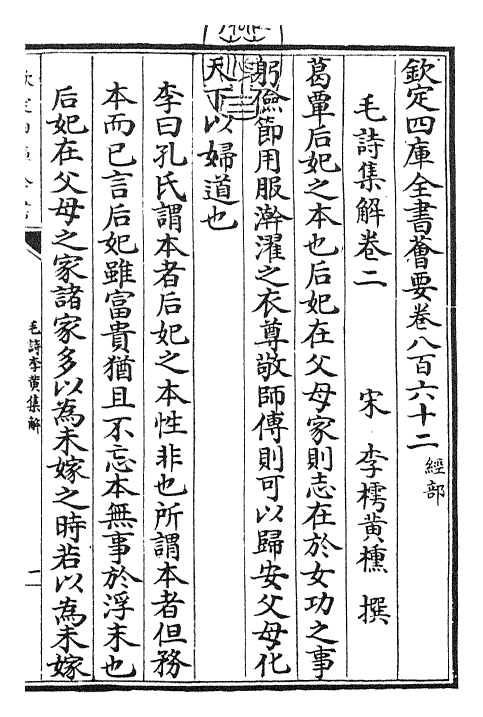 欽定四庫全書薈要卷八百六十二 經部
毛詩集解卷二 宋 李樗黃櫄 撰
葛覃后妃之本也后妃在父母家則志在於女功之事
躬儉節用服澣濯之衣尊敬師傅則可以歸安父母化
天下以婦道也
李曰孔氏謂本者后妃之本性非也所謂本者但務
本而已言后妃雖富貴猶且不忘本無事於浮末也
后妃在父母之家諸家多以為未嫁之時若以為未嫁
毛詩李黃集解
一